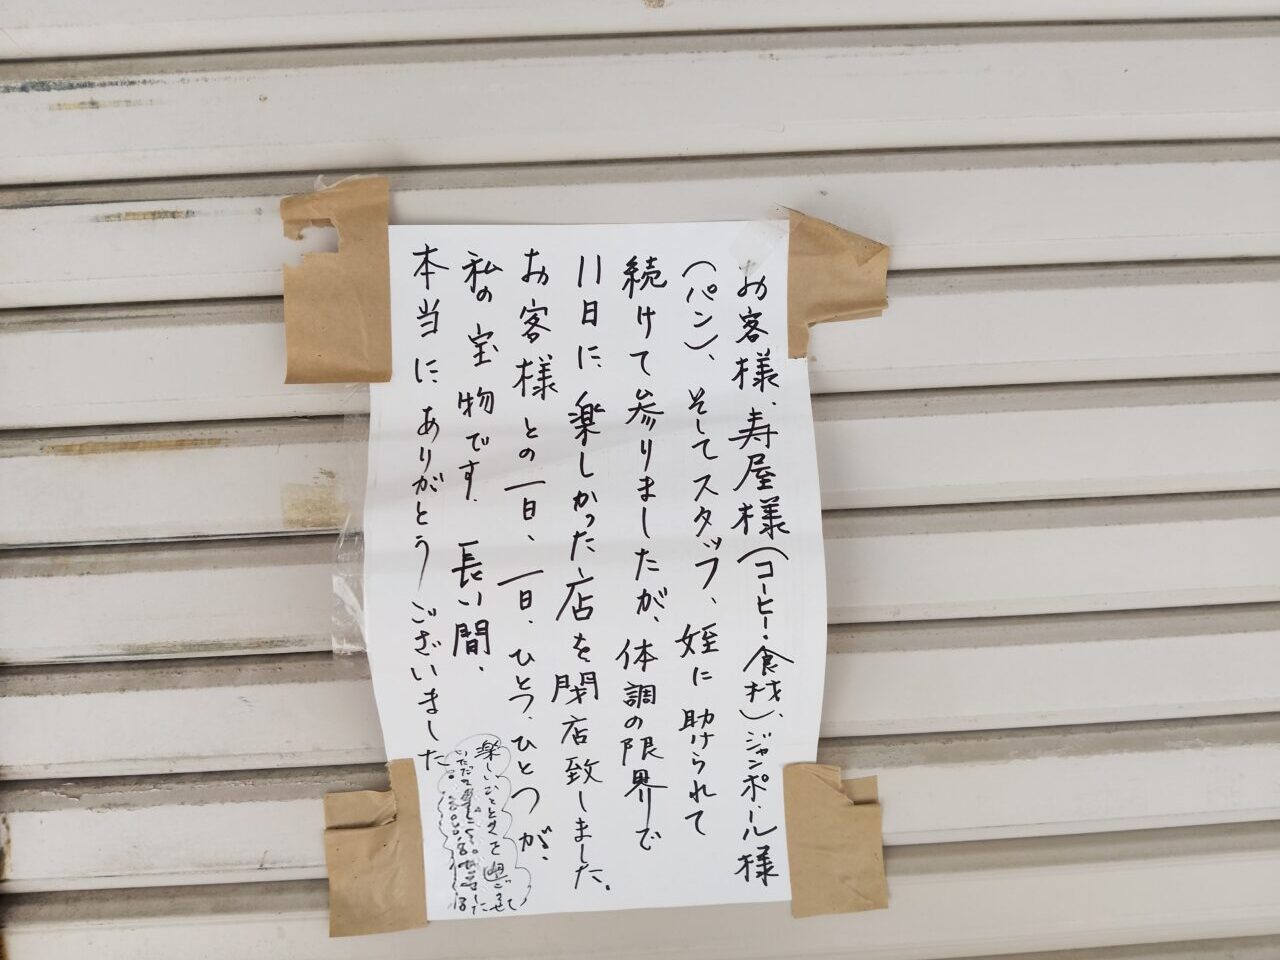 お客様、寿屋様(コーヒー・食材)、ジャンポール様
(パン)、そしてスタッフ、姪に助けられて
続けて参りましたが、体調の限界で
11日に楽しかった店を閉店致しました。
お客様との一日、一日、ひとつ、ひとつが、
私の宝物です。長い間、
本当にありがとうございました
楽しいひとときを過ごさせて
いただき